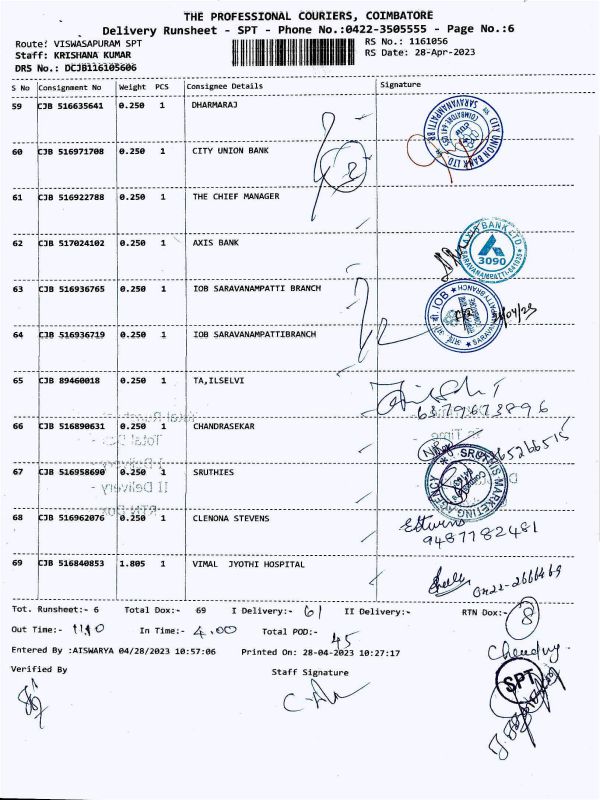 THE PROFESSIONAL COURIERS, COIMBATORE
Delivery Runsheet - SPT - Phone No.:0422-3505555 - Page No.:6
Route: VISWASAPURAM SPT
RS No.: 1161056
Staff: KRISHANA KUMAR
RS Date: 28-Apr-2023
DRS No.: DCJB116105606
S No Consignment No Weight PCS Consignee Details Signature
59 CJB 516635641 0.250 1 DHARMARAJ
60 CJB 516971708 0.250 1 CITY UNION BANK
CITY UNION BANK LTD
SARAVANAMPATTI BR
61 CJB 516922788 0.250 1 THE CHIEF MANAGER
62 CJB 517024102 0.250 1 AXIS BANK
AXIS BANK LTD
3090
SARAVANAMPATTI-641035
63 CJB 516936765 0.250 1 IOB SARAVANAMPATTI BRANCH
IOB
SARAVANAMPATTY BRANCH
64 CJB 516936719 0.250 1 IOB SARAVANAMPATTIBRANCH
65 CJB 89460018 0.250 1 TA,ILSELVI
6379673896
66 CJB 516890631 0.250 1 CHANDRASEKAR
67 CJB 516958690 0.250 1 SRUTHIES
MARKETING AGENCY
68 CJB 516962076 0.250 1 CLENONA STEVENS
9487782481
69 CJB 516840853 1.805 1 VIMAL JYOTHI HOSPITAL
0422-2666469
Tot. Runsheet:- 6 Total Dox:- 69 I Delivery:- 61 II Delivery:- RTN Dox:- 8
Out Time:- 1110 In Time:- 4.00 Total POD:- 45
Entered By :AISWARYA 04/28/2023 10:57:06 Printed On: 28-04-2023 10:27:17
Verified By Staff Signature
SPT